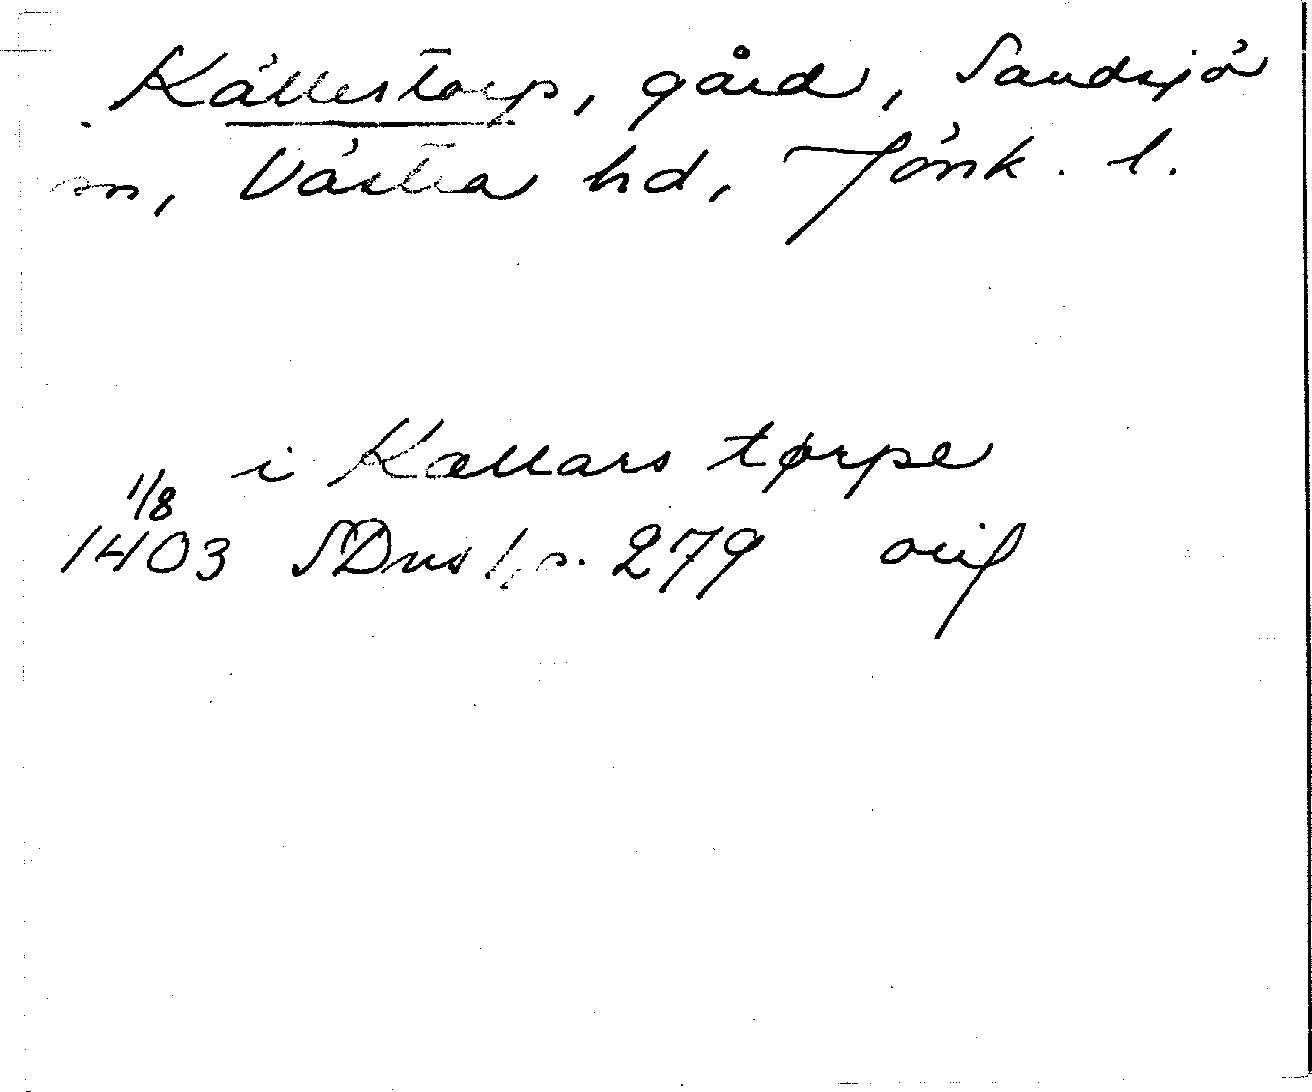 Källestorp, gård, Sandsjö
sn, Västra hd, Jönk. l.
i Kallars tørpe
1/8
1403 SDns 1 s. 279 orig